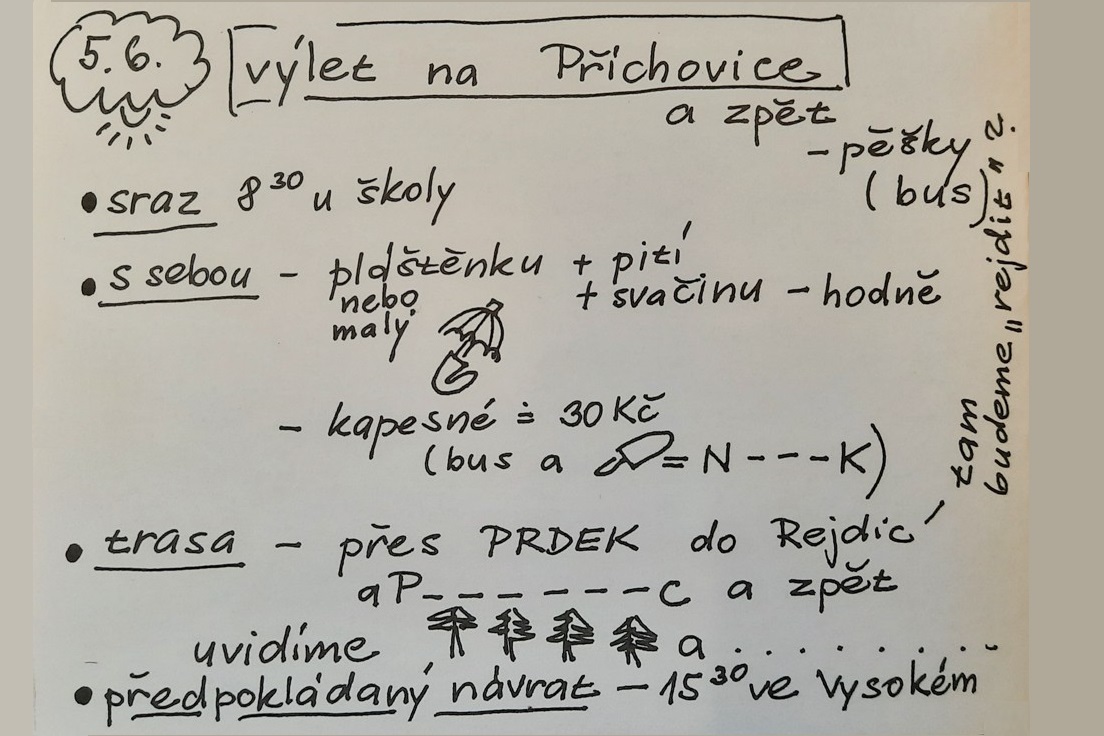 5.6.
výlet na Příchovice
a zpět
- pěšky
(bus)
• sraz 8 30 u školy
• s sebou - pláštěnku + pití
nebo + svačinu - hodně
malý
- kapesné ≐ 30 Kč
(bus a = N - - - K)
• trasa - přes PRDEK do Rejdic
a P - - - - - - - C a zpět
uvidíme a . . . . . . . . .
• předpokládaný návrat - 15 30 ve Vysokém
tam
budeme „rejdit" ?